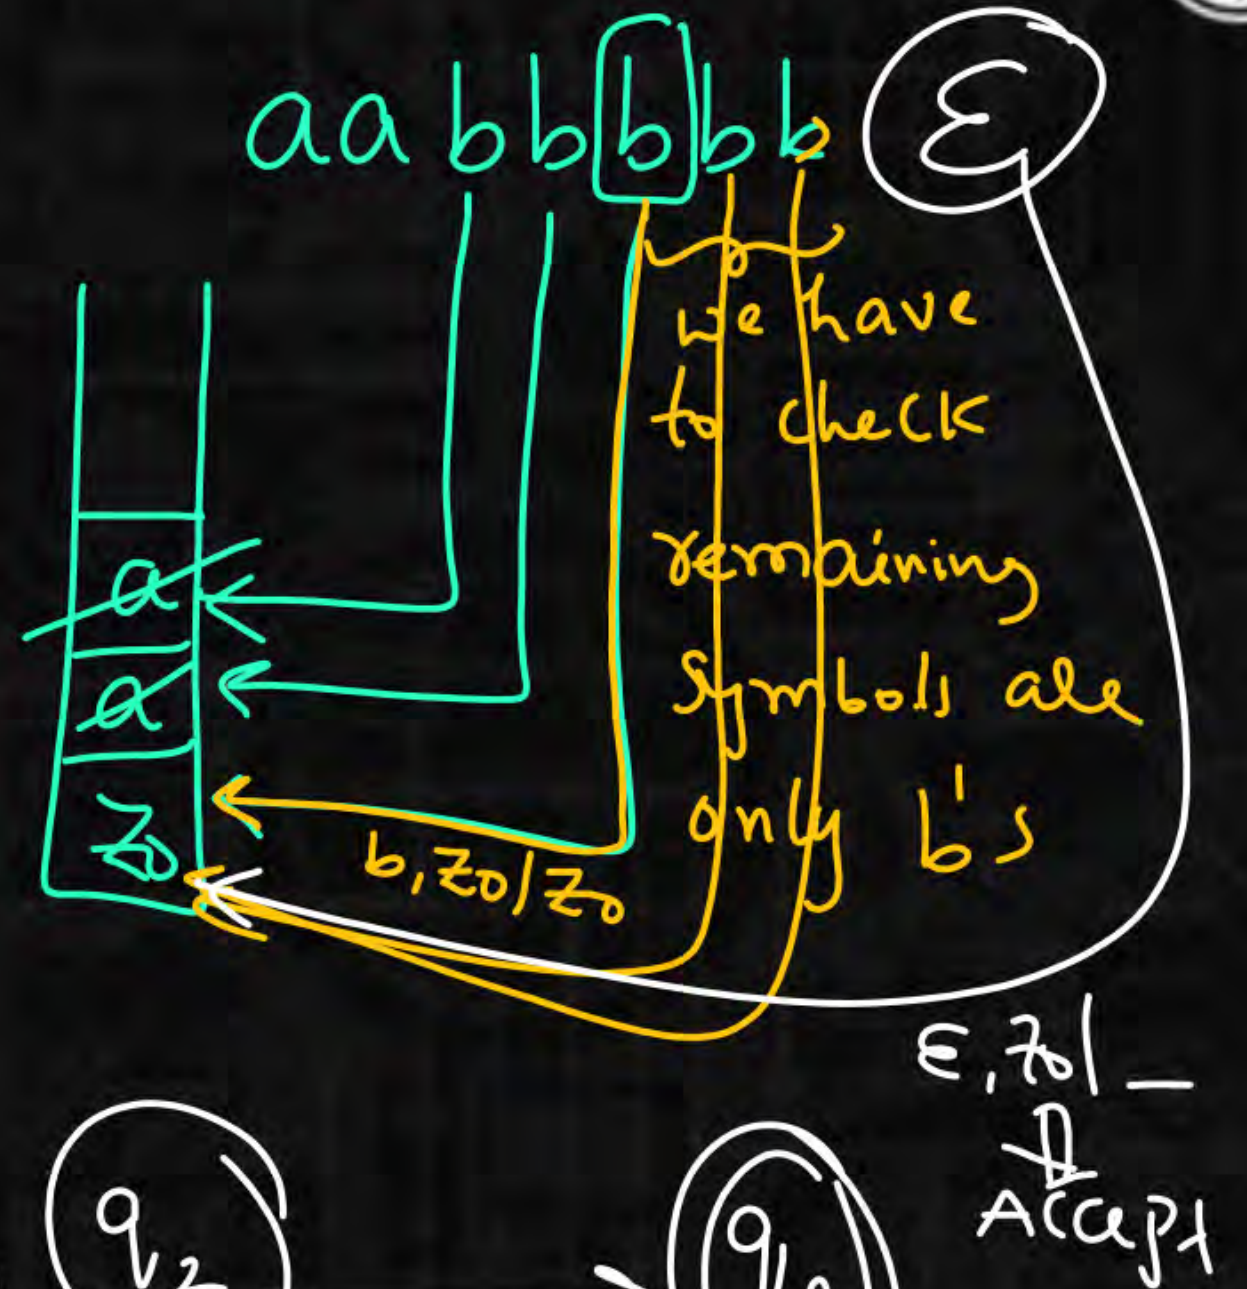 aabbbbb ε
we have
to check
a
remaining
a
symbols are
z₀
only b's
b,z₀/z₀
ε,z₀/_
Accept
q₂